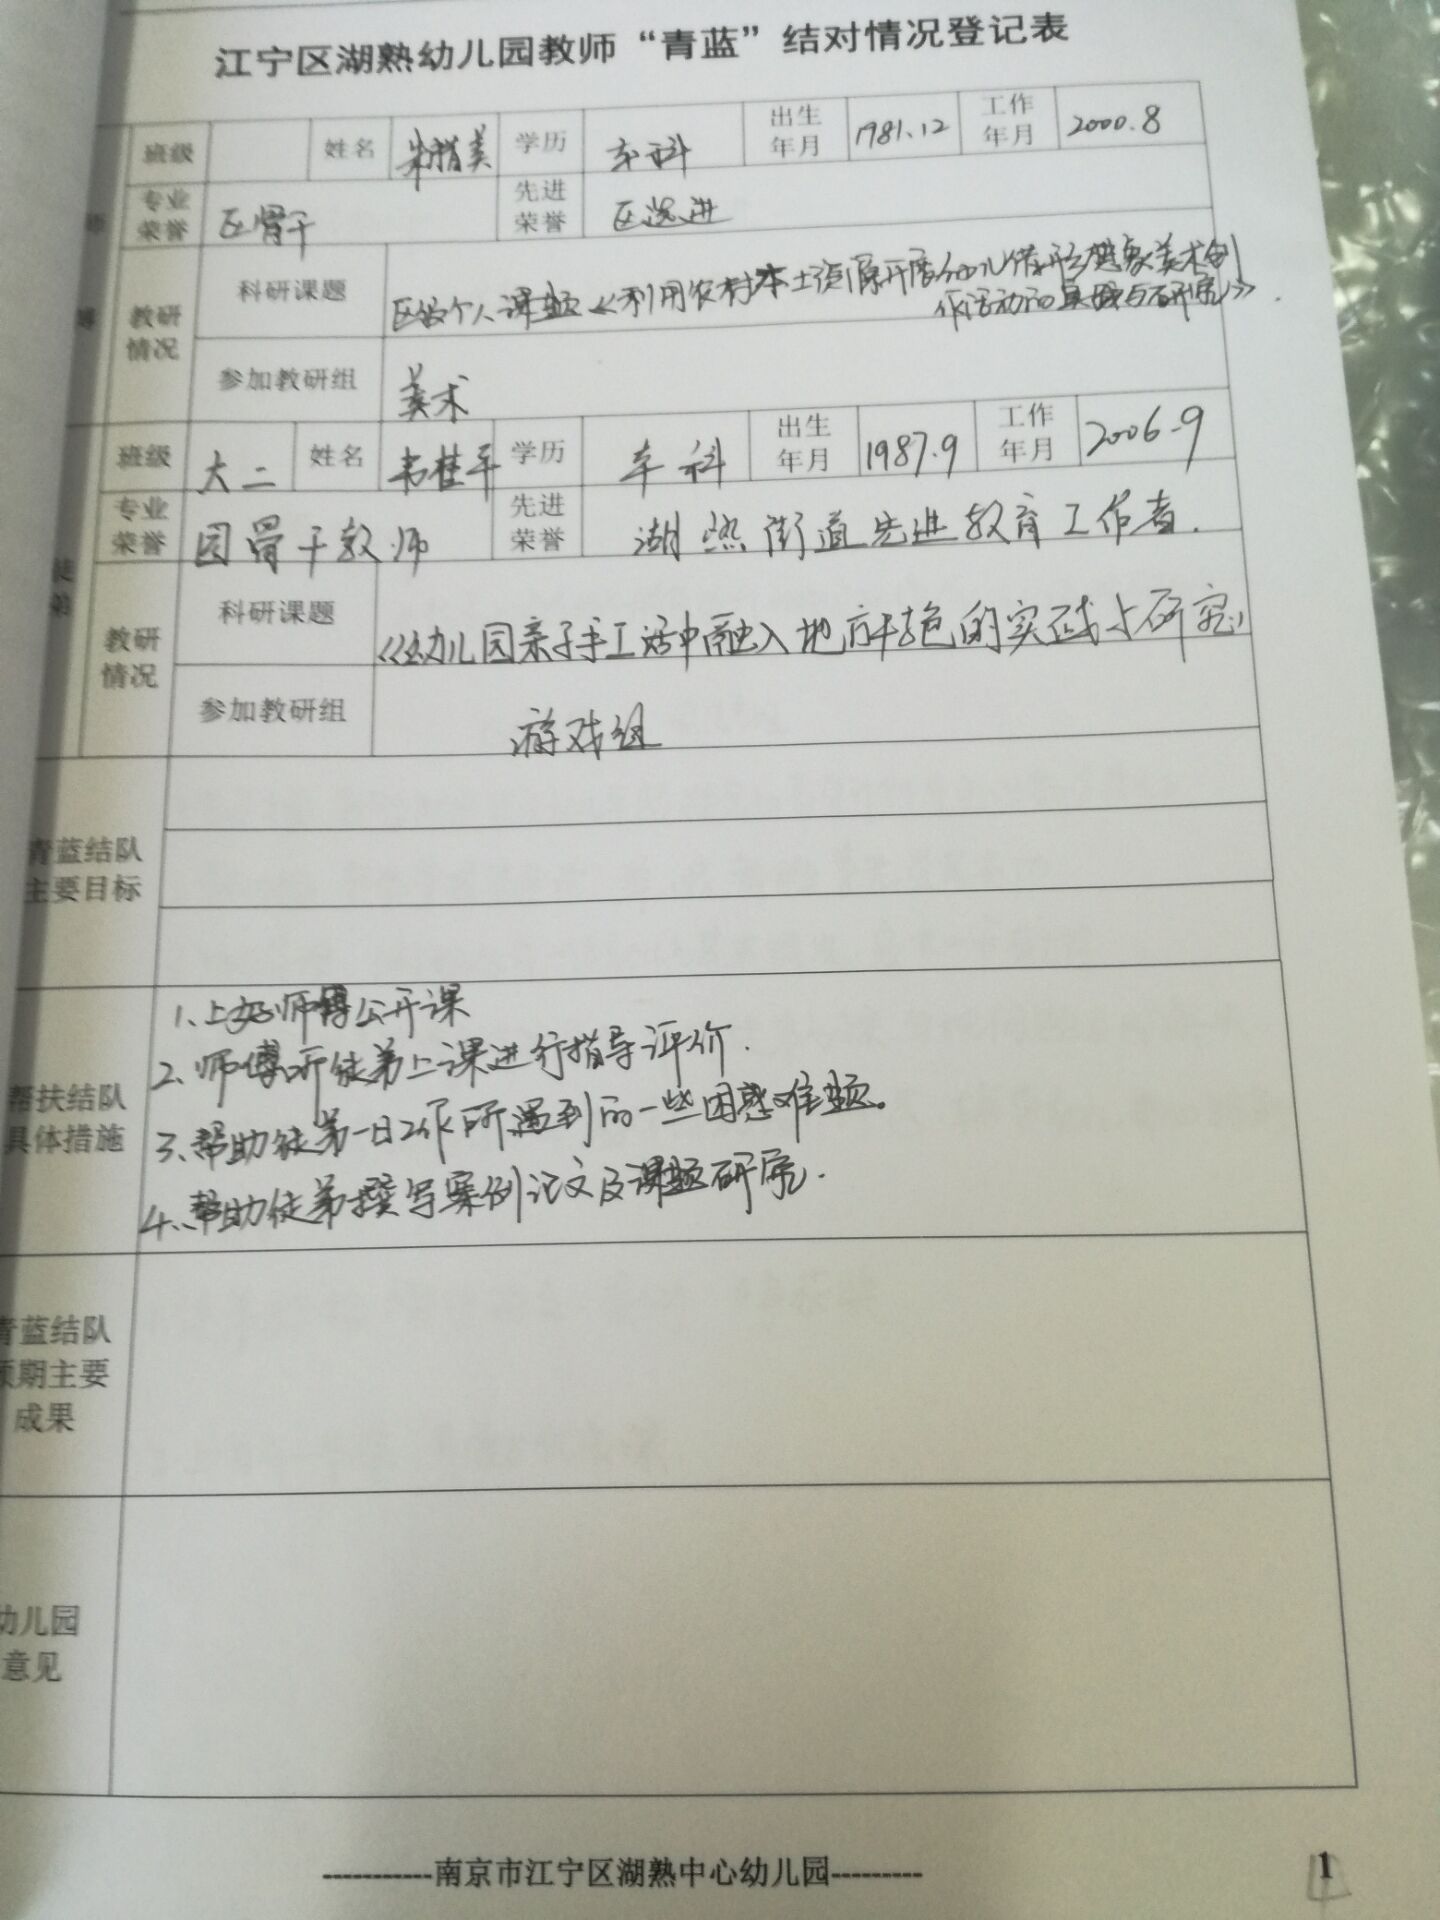 江宁区湖熟幼儿园教师“青蓝”结对情况登记表
班级 姓名 学历 本科 出生年月 1981.12 工作年月 2000.8
专业荣誉 区骨干 先进荣誉 区先进
师
教研情况 科研课题 区级个人课题《利用农村本土资源开展幼儿借形想象美术创
作活动的实践与研究》.
参加教研组 美术
班级 大二 姓名 韦桂平 学历 本科 出生年月 1987.9 工作年月 2006.9
专业荣誉 园骨干教师 先进荣誉 湖熟街道先进教育工作者.
徒弟
教研情况 科研课题 《幼儿园亲子手工活中融入地方特色的实践与研究》
参加教研组 游戏组
青蓝结队
主要目标
帮扶结队
具体措施
1、上好师傅公开课
2、师傅听徒弟上课进行指导评价.
3、帮助徒弟一日工作所遇到的一些困惑难题。
4、帮助徒弟撰写案例论文及课题研究.
青蓝结队
预期主要
成果
幼儿园
意见
-----------南京市江宁区湖熟中心幼儿园---------
1